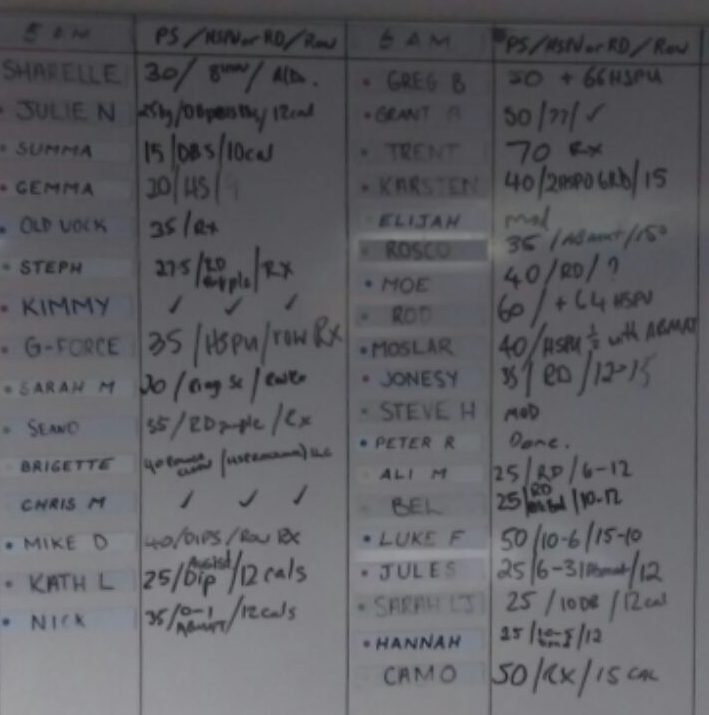 5 AM PS/HSPU or RD/Row
SHARELLE 30/
JULIE N /12cal
SUMMA 15/DBS/10cal
GEMMA 30/HS/
OLD 35/Rx
STEPH 27.5/RD /Rx
KIMMY ✓ ✓ ✓
G-FORCE 35/HSPU/row RX
SARAH M 30/Ring
SEANO 35/RD /Rx
BRIGETTE
CHRIS M ✓ ✓ ✓
MIKE D 40/DIPS/Row RX
KATH L 25/Assisted Dip/12 cals
NICK 35/0-1 ABMAT/12cals
6 AM PS/HSPU or RD/Row
GREG B 50 + 66 HSPU
GRANT 50/??/✓
TRENT 70 Rx
KARSTEN 40/2HSPU 6RD/15
ELIJAH mod
ROSCO 35/ABMAT/15
MOE 40/RD/?
ROD 60/+ 64 HSPU
MOSLAR 40/HSPU ½ with ABMAT
JONESY 35/RD/12-15
STEVE H MOD
PETER R Done.
ALI M 25/RD/6-12
BEL 25/RD /10-12
LUKE F 50/10-6/15-10
JULES 25/6-3 /12
SARAH LJ 25/10DB/12cal
HANNAH 25/ /12
CAMO 50/RX/15 CAL